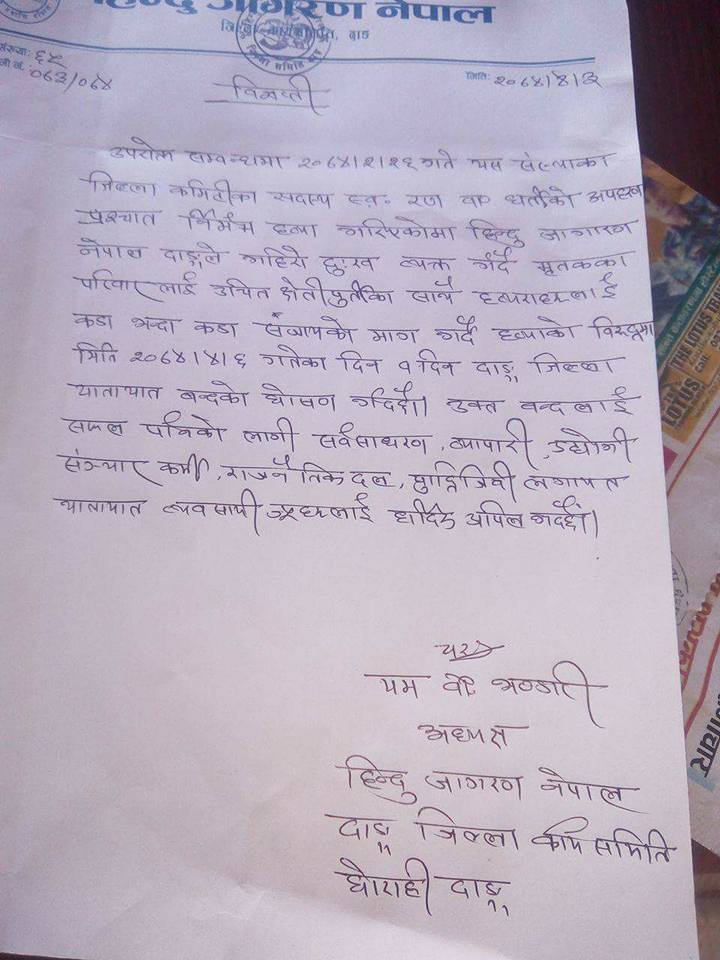 हिन्दु जागरण नेपाल
जिल्ला कार्यसमिति, दाङ
संख्या: ६५
०६३/०६४
मिति: २०६४।४।३
विज्ञप्ती
उपरोक्त सम्वन्धमा २०६४।२।२६ गते यस संस्थाका
जिल्ला कमिटीका सदस्य स्व: रण वा॰ घर्तीको अपहरण
पश्चात निर्मम हत्या गरिएकोमा हिन्दु जागरण
नेपाल दाङ्गले गहिरो दु:ख व्यक्त गर्दै मृतकका
परिवारलाई उचित क्षेतीपुर्तीका साथै हत्याराहरुलाई
कडा भन्दा कडा संजायको माग गर्दै हत्याको विरुद्धमा
मिति २०६४।४।६ गतेका दिन १ दिन दाङ्ग जिल्ला
यातायात बन्दको घोषणा गर्दछौ। उक्त बन्दलाई
सफल पार्नको लागी सर्वसाधरण, व्यापारी, उद्योगी
संञ्चार कर्मी, राजनैतिक दल, बुद्धिजिवी लगायत
यातायात व्यवसायी हरुलाई हार्दिक अपिल गर्दछौं।
यम वा॰ भण्डारी
अध्यक्ष
हिन्दु जागरण नेपाल
दाङ्ग जिल्ला कार्य समिति
घोराही दाङ्ग
THE LOTUS
LOTUS